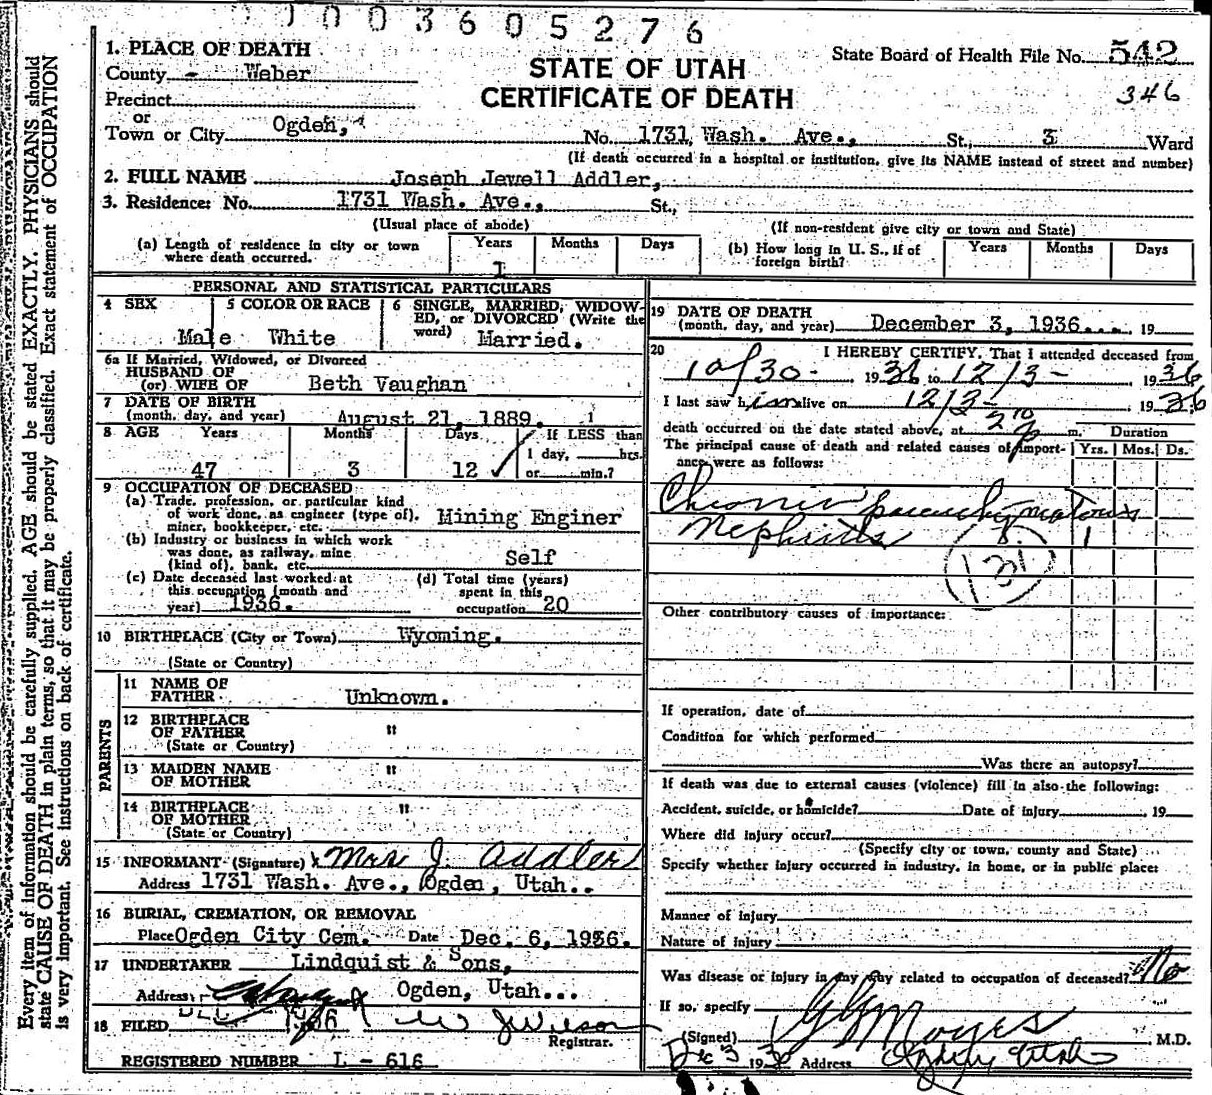 0003605276
1. PLACE OF DEATH
State Board of Health File No. 542
County - Weber
STATE OF UTAH
346
Precinct
CERTIFICATE OF DEATH
or
Town or City Ogden, No. 1731 Wash. Ave., St., 3 Ward
(If death occurred in a hospital or institution, give its NAME instead of street and number)
2. FULL NAME Joseph Jewell Addler,
3. Residence: No. 1731 Wash. Ave., St.,
(Usual place of abode) (If non-resident give city or town and State)
(a) Length of residence in city or town where death occurred. Years 1 Months Days
(b) How long in U. S., if of foreign birth? Years Months Days
PERSONAL AND STATISTICAL PARTICULARS
4 SEX Male
5 COLOR OR RACE White
6 SINGLE, MARRIED, WIDOW-
ED, or DIVORCED (Write the
word) Married.
6a If Married, Widowed, or Divorced
HUSBAND OF
(or) WIFE OF Beth Vaughan
7 DATE OF BIRTH
(month, day, and year) August 21, 1889.
8 AGE Years 47 Months 3 Days 12 If LESS than
1 day, hrs.
or min.?
9 OCCUPATION OF DECEASED
(a) Trade, profession, or particular kind
of work done, as engineer (type of),
miner, bookkeeper, etc. Mining Enginer
(b) Industry or business in which work
was done, as railway, mine
(kind of), bank, etc. Self
(c) Date deceased last worked at
this occupation (month and
year) 1936.
(d) Total time (years)
spent in this
occupation 20
10 BIRTHPLACE (City or Town) Wyoming.
(State or Country)
PARENTS
11 NAME OF
FATHER Unknown.
12 BIRTHPLACE
OF FATHER "
(State or Country)
13 MAIDEN NAME
OF MOTHER "
14 BIRTHPLACE
OF MOTHER "
(State or Country)
15 INFORMANT (Signature) x Mrs J. Addler
Address 1731 Wash. Ave., Ogden, Utah..
16 BURIAL, CREMATION, OR REMOVAL
Place Ogden City Cem. Date Dec. 6, 1936.
17 UNDERTAKER Lindquist & Sons,
Address Ogden, Utah...
18 FILED W J Wilson
Registrar.
REGISTERED NUMBER L - 616
19 DATE OF DEATH
(month, day, and year) December 3, 1936... , 19
20 I HEREBY CERTIFY, That I attended deceased from
10/30- 1936 to 12/3- 1936
I last saw him alive on 12/3- , 1936
death occurred on the date stated above, at m. Duration
The principal cause of death and related causes of import-
ance were as follows: Yrs. Mos. Ds.
Chronic parenchymatous
Nephritis 1
131
Other contributory causes of importance:
If operation, date of
Condition for which performed
Was there an autopsy?
If death was due to external causes (violence) fill in also the following:
Accident, suicide, or homicide? Date of injury , 19
Where did injury occur?
(Specify city or town, county and State)
Specify whether injury occurred in industry, in home, or in public place:
Manner of injury
Nature of injury
Was disease or injury in any way related to occupation of deceased? No
If so, specify
(Signed) M.D.
Dec 3 1936 Address Ogden, Utah
Every item of information should be carefully supplied. AGE should be stated EXACTLY. PHYSICIANS should
state CAUSE OF DEATH in plain terms, so that it may be properly classified. Exact statement of OCCUPATION
is very important. See instructions on back of certificate.